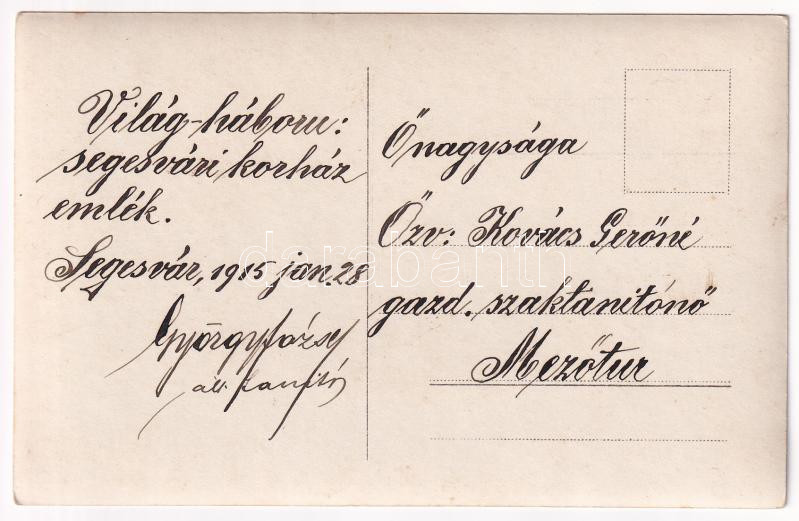 Világ-háboru:
segesvári korház
emlék.
Segesvár, 1915 jan. 28
György József
áll. tanító
Őnagysága
Özv: Kovács Gerőné
gazd. szaktanitónő
Mezőtur
darabanth